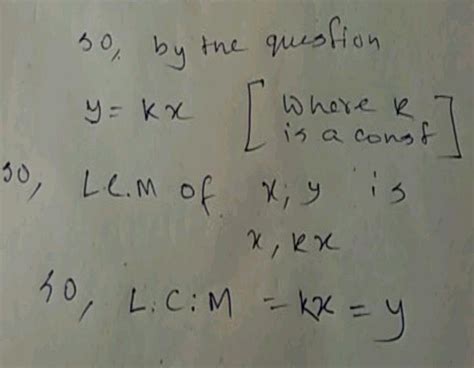 so, by the question
y = kx [where k is a const]
so, L.C.M of x, y is
x, kx
so, L.C.M = kx = y